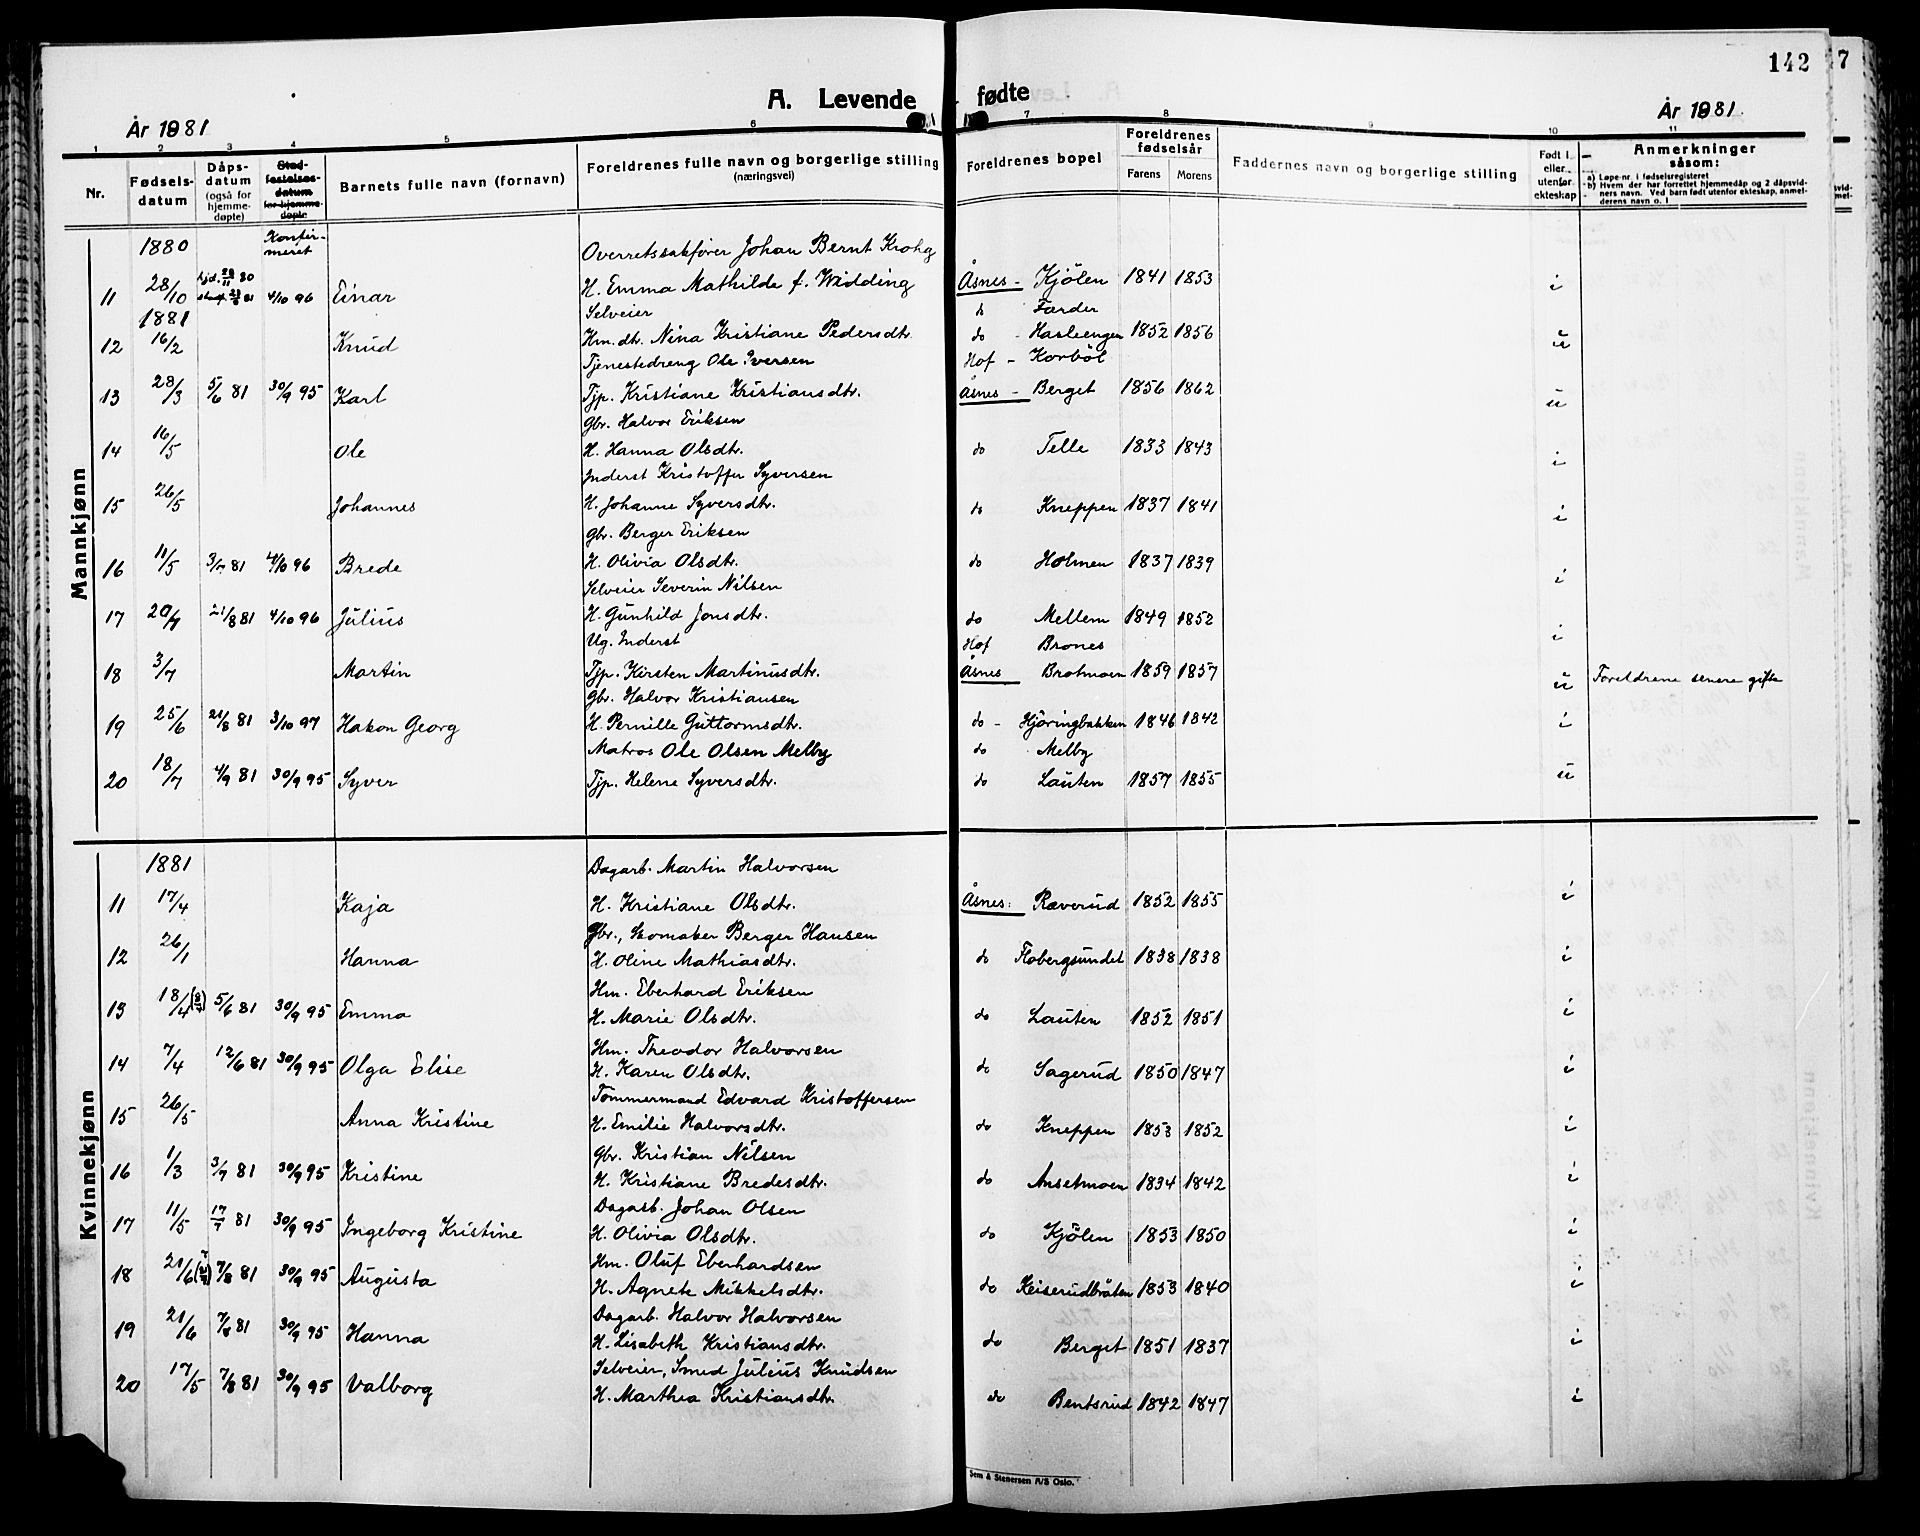 142
7
A. Levende fødte
År 1881
År 1881.
1 2 3 4 5 6 7 8 9 10 11
Nr. Fødsels-datum Dåps-datum (også for hjemme-døpte) Stad-festelses-datum for hjemme-døpte Barnets fulle navn (fornavn) Foreldrenes fulle navn og borgerlige stilling (næringsvei) Foreldrenes bopel Foreldrenes fødselsår Farens Morens Faddernes navn og borgerlige stilling Født i eller utenfor ekteskap Anmerkninger såsom:
a) Løpe-nr. i fødselsregisteret
b) Hvem der har forrettet hjemmedåp og 2 dåpsvidners navn. Ved barn født utenfor ekteskap, anmelderens navn o. l
Mannkjønn
1880 Konfirmeret Overretssakfører Johan Bernt Krohg
11 28/10 hjd. 28/11 80 4/10 96 Einar H. Emma Mathilde f. Widding Åsnes - Kjölen 1841 1853 i
1881 Selveier do Farder
12 16/2 Knud Hm. dtr. Nina Kristiane Pedersdtr. do - Hasleengen 1852 1856 u
Tjenestedreng Ole Iversen Hof - Korböl
13 28/3 5/6 81 30/9 95 Karl Tjp. Kristiane Kristiansdtr. Åsnes - Berget 1856 1862 u
Gbr. Halvor Eriksen
14 16/5 Ole H. Hanna Olsdtr. do Telle 1833 1843 i
Inderst Kristoffer Syversen
15 26/5 Johannes H. Johanne Syversdtr. do Kneppen 1837 1841 i
Gbr. Berger Eriksen
16 11/5 3/7 81 4/10 96 Brede H. Olivia Olsdtr. do Holmen 1837 1839 i
Selveier Severin Nilsen
17 20/7 21/8 81 4/10 96 Julius H. Gunhild Jonsdtr. do Mellem 1849 1852 i
Ug. Inderst Hof Brones
18 3/7 Martin Tjp. Kirsten Martinusdtr. Åsnes Brotmoen 1859 1857 u Foreldrene senere gifte
Gbr. Halvor Kristiansen
19 25/6 21/8 81 3/10 97 Hakon Georg H. Pernille Guttormsdtr. do - Hjöringbakken 1846 1842 i
Matros Ole Olsen Melby do Melby
20 18/7 4/9 81 30/9 95 Syver Tjp. Helene Syversdtr. do Lauten 1857 1855 u
Kvinnekjønn
1881 Dagarb. Martin Halvorsen
11 17/4 Kaja H. Kristiane Olsdtr. Åsnes: Raverud 1852 1855 i
Gbr., Skomaker Berger Hansen
12 26/1 Hanna H. Oline Mathiasdtr. do Flobergsundet 1838 1838 i
Hm. Eberhard Eriksen
13 18/4 5/6 81 30/9 95 Emma H. Marie Olsdtr. do Lauten 1852 1851 i
Hm. Theodor Halvorsen
14 7/4 12/6 81 30/9 95 Olga Elise H. Karen Olsdtr. do Sagerud 1850 1847 i
Tömmermand Edvard Kristoffersen
15 26/5 Anna Kristine H. Emilie Halvorsdtr. do Kneppen 1853 1852 i
Gbr. Kristian Nilsen
16 1/3 3/7 81 30/9 95 Kristine H. Kristiane Bredesdtr. do Anselmoen 1834 1842 i
Dagarb. Johan Olsen
17 11/5 17/7 81 30/9 95 Ingeborg Kristine H. Olivia Olsdtr. do Kjölen 1853 1850 i
Hm. Oluf Eberhardsen
18 21/6 7/8 81 30/9 95 Augusta H. Agnete Mikkelsdtr. do Keiserudbråten 1853 1840 i
Dagarb. Halvor Halvorsen
19 21/6 7/8 81 30/9 95 Hanna H. Lisabeth Kristiansdtr. do Berget 1851 1837 i
Selveier, Smed Julius Knudsen
20 17/5 7/8 81 30/9 95 Valborg H. Marthea Kristiansdtr. do Bentsrud 1842 1847 i
Sem & Stenersen A/S Oslo.